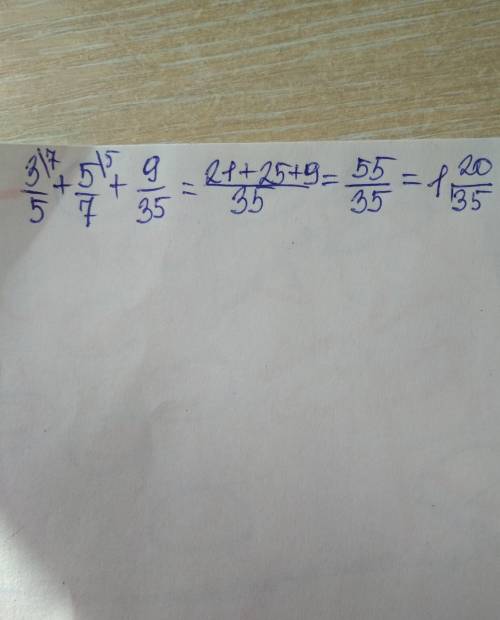 3\7/5 + 5\5/7 + 9/35 = 21+25+9/35 = 55/35 = 1 20/35